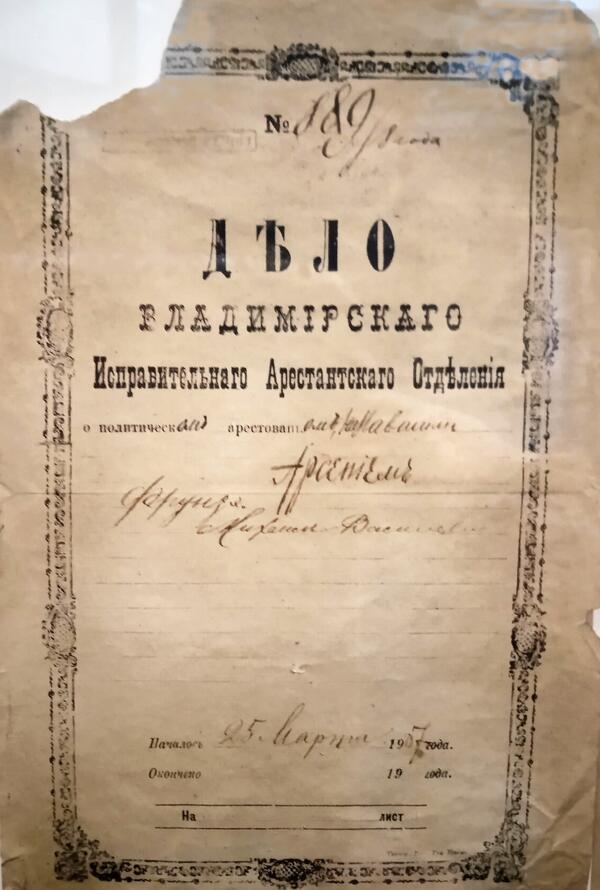 № 889
года
ДѢЛО
ВЛАДИМІРСКАГО
Исправительнаго Арестантскаго Отдѣленія
о политическомъ арестованномъ
Арсеніемъ
Фрунзе
Михаил Василь
Началось 25 Марта 1907 года.
Окончено 19 года.
На лист